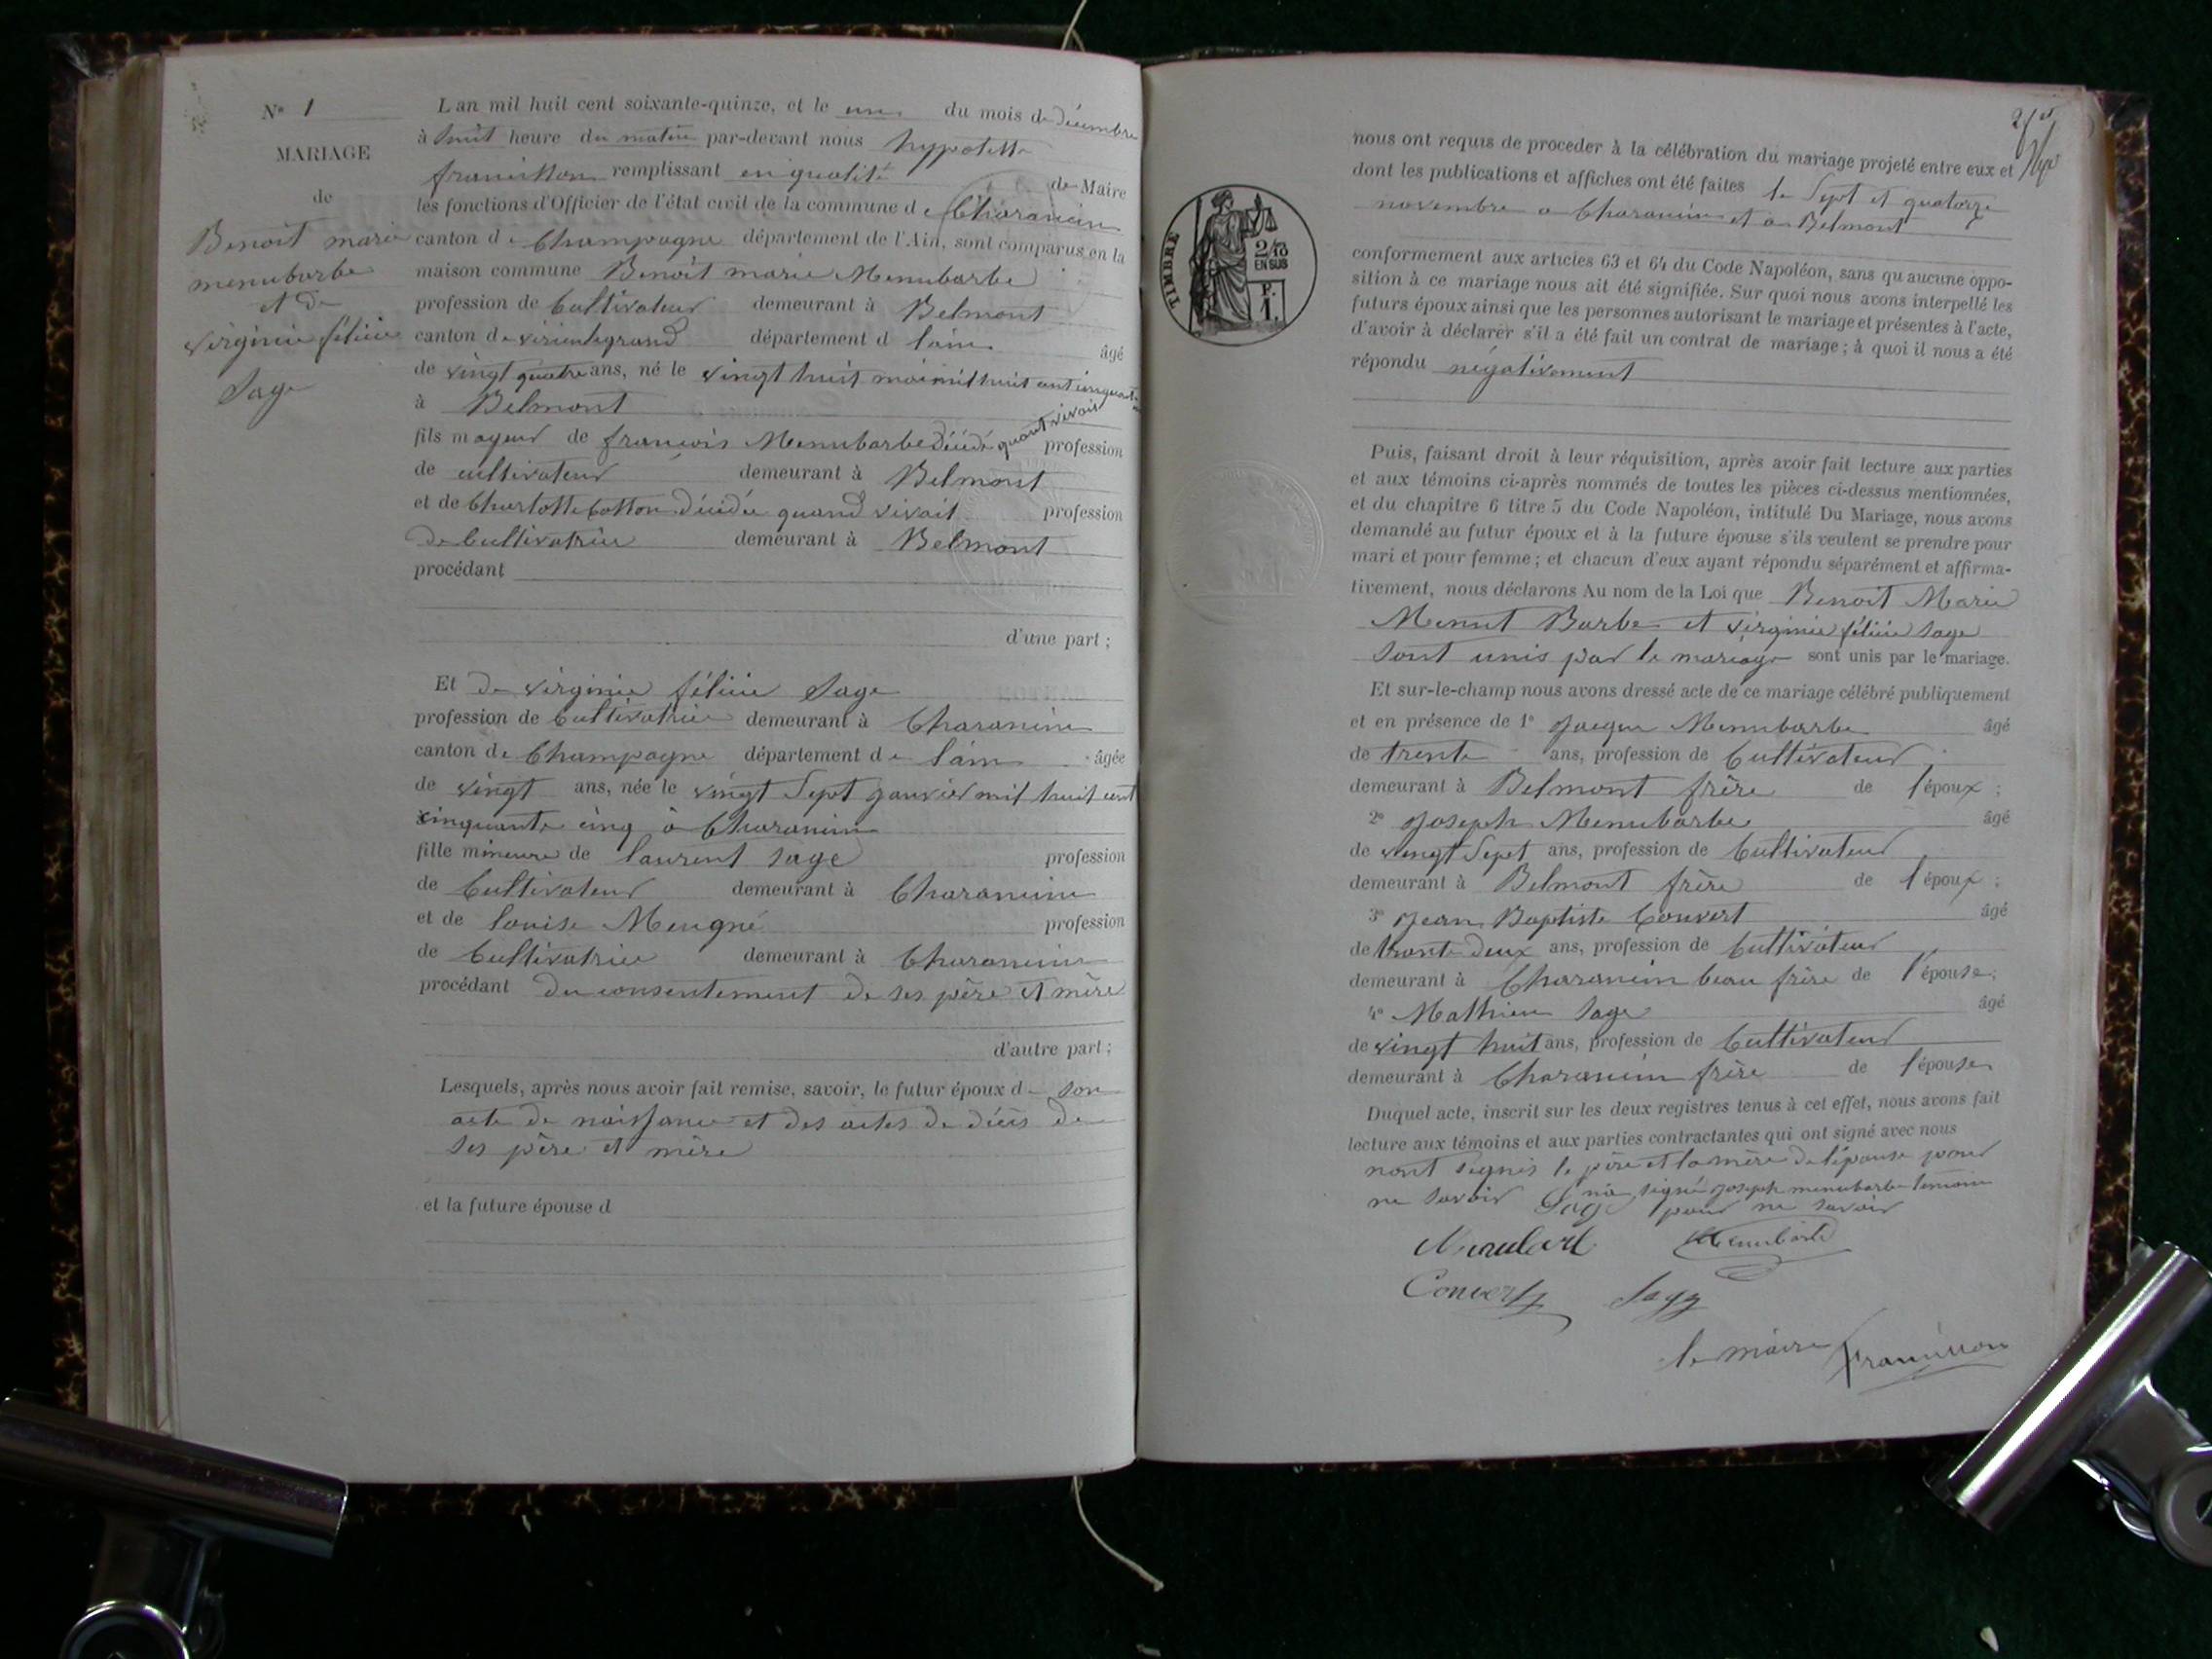 N° 1
MARIAGE
de
Benoit marie
menubarbe
et de
virginie félicie
Sage
L an mil huit cent soixante-quinze, et le un du mois de décembre
à huit heure du matin par-devant nous hypolitte
francillon remplissant en qualité de Maire
les fonctions d'Officier de l'état civil de la commune de Charancin
canton de Champagne département de l'Ain, sont comparus en la
maison commune Benoit marie Menubarbe
profession de Cultivateur demeurant à Belmont
canton de virieulegrand département d l'ain âgé
de vingt quatre ans, né le vingt huit mai mil huit cent cinquante
à Belmont
fils mageur de françois Menubarbe décédé quant vivais profession
de cultivateur demeurant à Belmont
et de Charlotte Cotton décédée quand vivait profession
de Cultivatrice demeurant à Belmont
procédant
d'une part ;
Et de virginie félicie Sage
profession de Cultivatrice demeurant à Charancin
canton de Champagne département de l'ain âgée
de vingt ans, née le vingt Sept janvier mil huit cent
cinquante cinq à Charancin
fille mineure de laurent sage profession
de Cultivateur demeurant à Charancin
et de louise Meugné profession
de Cultivatrice demeurant à Charancin
procédant du consentement de ses père et mère
d'autre part ;
Lesquels, après nous avoir fait remise, savoir, le futur époux de son
acte de naissance et des actes de décès de
ses père et mère
et la future épouse d
nous ont requis de proceder à la célébration du mariage projeté entre eux et
dont les publications et affiches ont été faites le Sept et quatorze
novembre a Charancin et a Belmont
TIMBRE
2/10
EN SUS
F.
1.
conformement aux articles 63 et 64 du Code Napoléon, sans qu aucune oppo-
sition à ce mariage nous ait été signifiée. Sur quoi nous avons interpellé les
futurs époux ainsi que les personnes autorisant le mariage et présentes à l'acte,
d'avoir à déclarer s'il a été fait un contrat de mariage ; à quoi il nous a été
répondu négativement
Puis, faisant droit à leur réquisition, après avoir fait lecture aux parties
et aux témoins ci-après nommés de toutes les pièces ci-dessus mentionnées,
et du chapitre 6 titre 5 du Code Napoléon, intitulé Du Mariage, nous avons
demandé au futur époux et à la future épouse s'ils veulent se prendre pour
mari et pour femme ; et chacun d'eux ayant répondu séparément et affirma-
tivement, nous déclarons Au nom de la Loi que Benoit Marie
Menut Barbe et virginie félicie sage
sont unis par le mariage sont unis par le mariage.
Et sur-le-champ nous avons dressé acte de ce mariage célébré publiquement
et en présence de 1° Jacque Menubarbe âgé
de trente ans, profession de Cultivateur
demeurant à Belmont frère de l'époux ;
2° Joseph Menubarbe âgé
de vingt Sepet ans, profession de Cultivateur
demeurant à Belmont frère de l'époux ;
3° Jean Baptiste Convert âgé
de trante deux ans, profession de Cultivateur
demeurant à Charancin beau frère de l'épouse ;
4° Mathieu Sage âgé
de vingt huit ans, profession de Cultivateur
demeurant à Charancin frère de l'épouse
Duquel acte, inscrit sur les deux registres tenus à cet effet, nous avons fait
lecture aux témoins et aux parties contractantes qui ont signé avec nous
nont signés le père et la mère de l'épouse pour
ne savoir na signé Joseph menubarbe temoin
Sage pour ne savoir
Menubarbe
Convert Sage
le maire Francillon